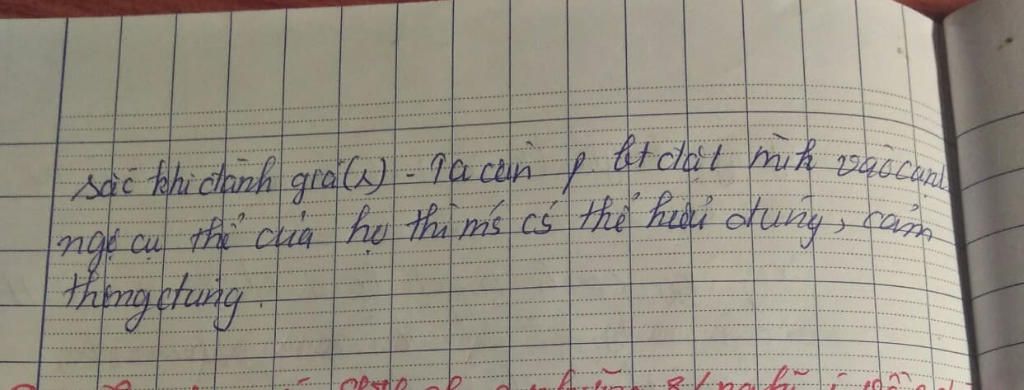 sắc khi đánh giá (λ) - Ta cần p biết đặt mình vào cảnh
ngộ cụ thể của họ thì mới có thể hiểu đúng, cảm
thông đúng.